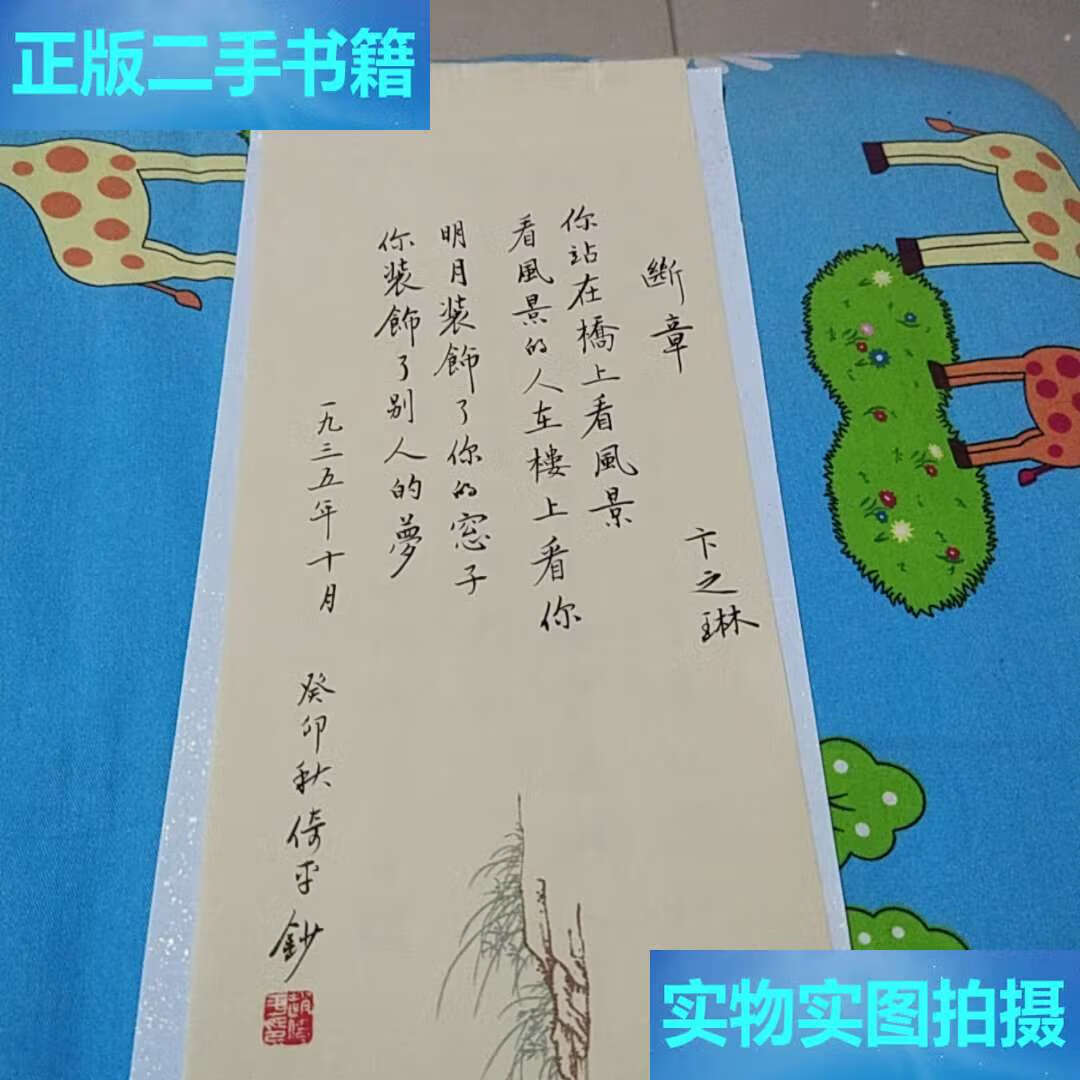 正版二手书籍
斷章
卞之琳
你站在橋上看風景
看風景的人在樓上看你
明月装飾了你的窓子
你装飾了别人的夢
一九三五年十月
癸卯秋倚平鈔
实物实图拍摄